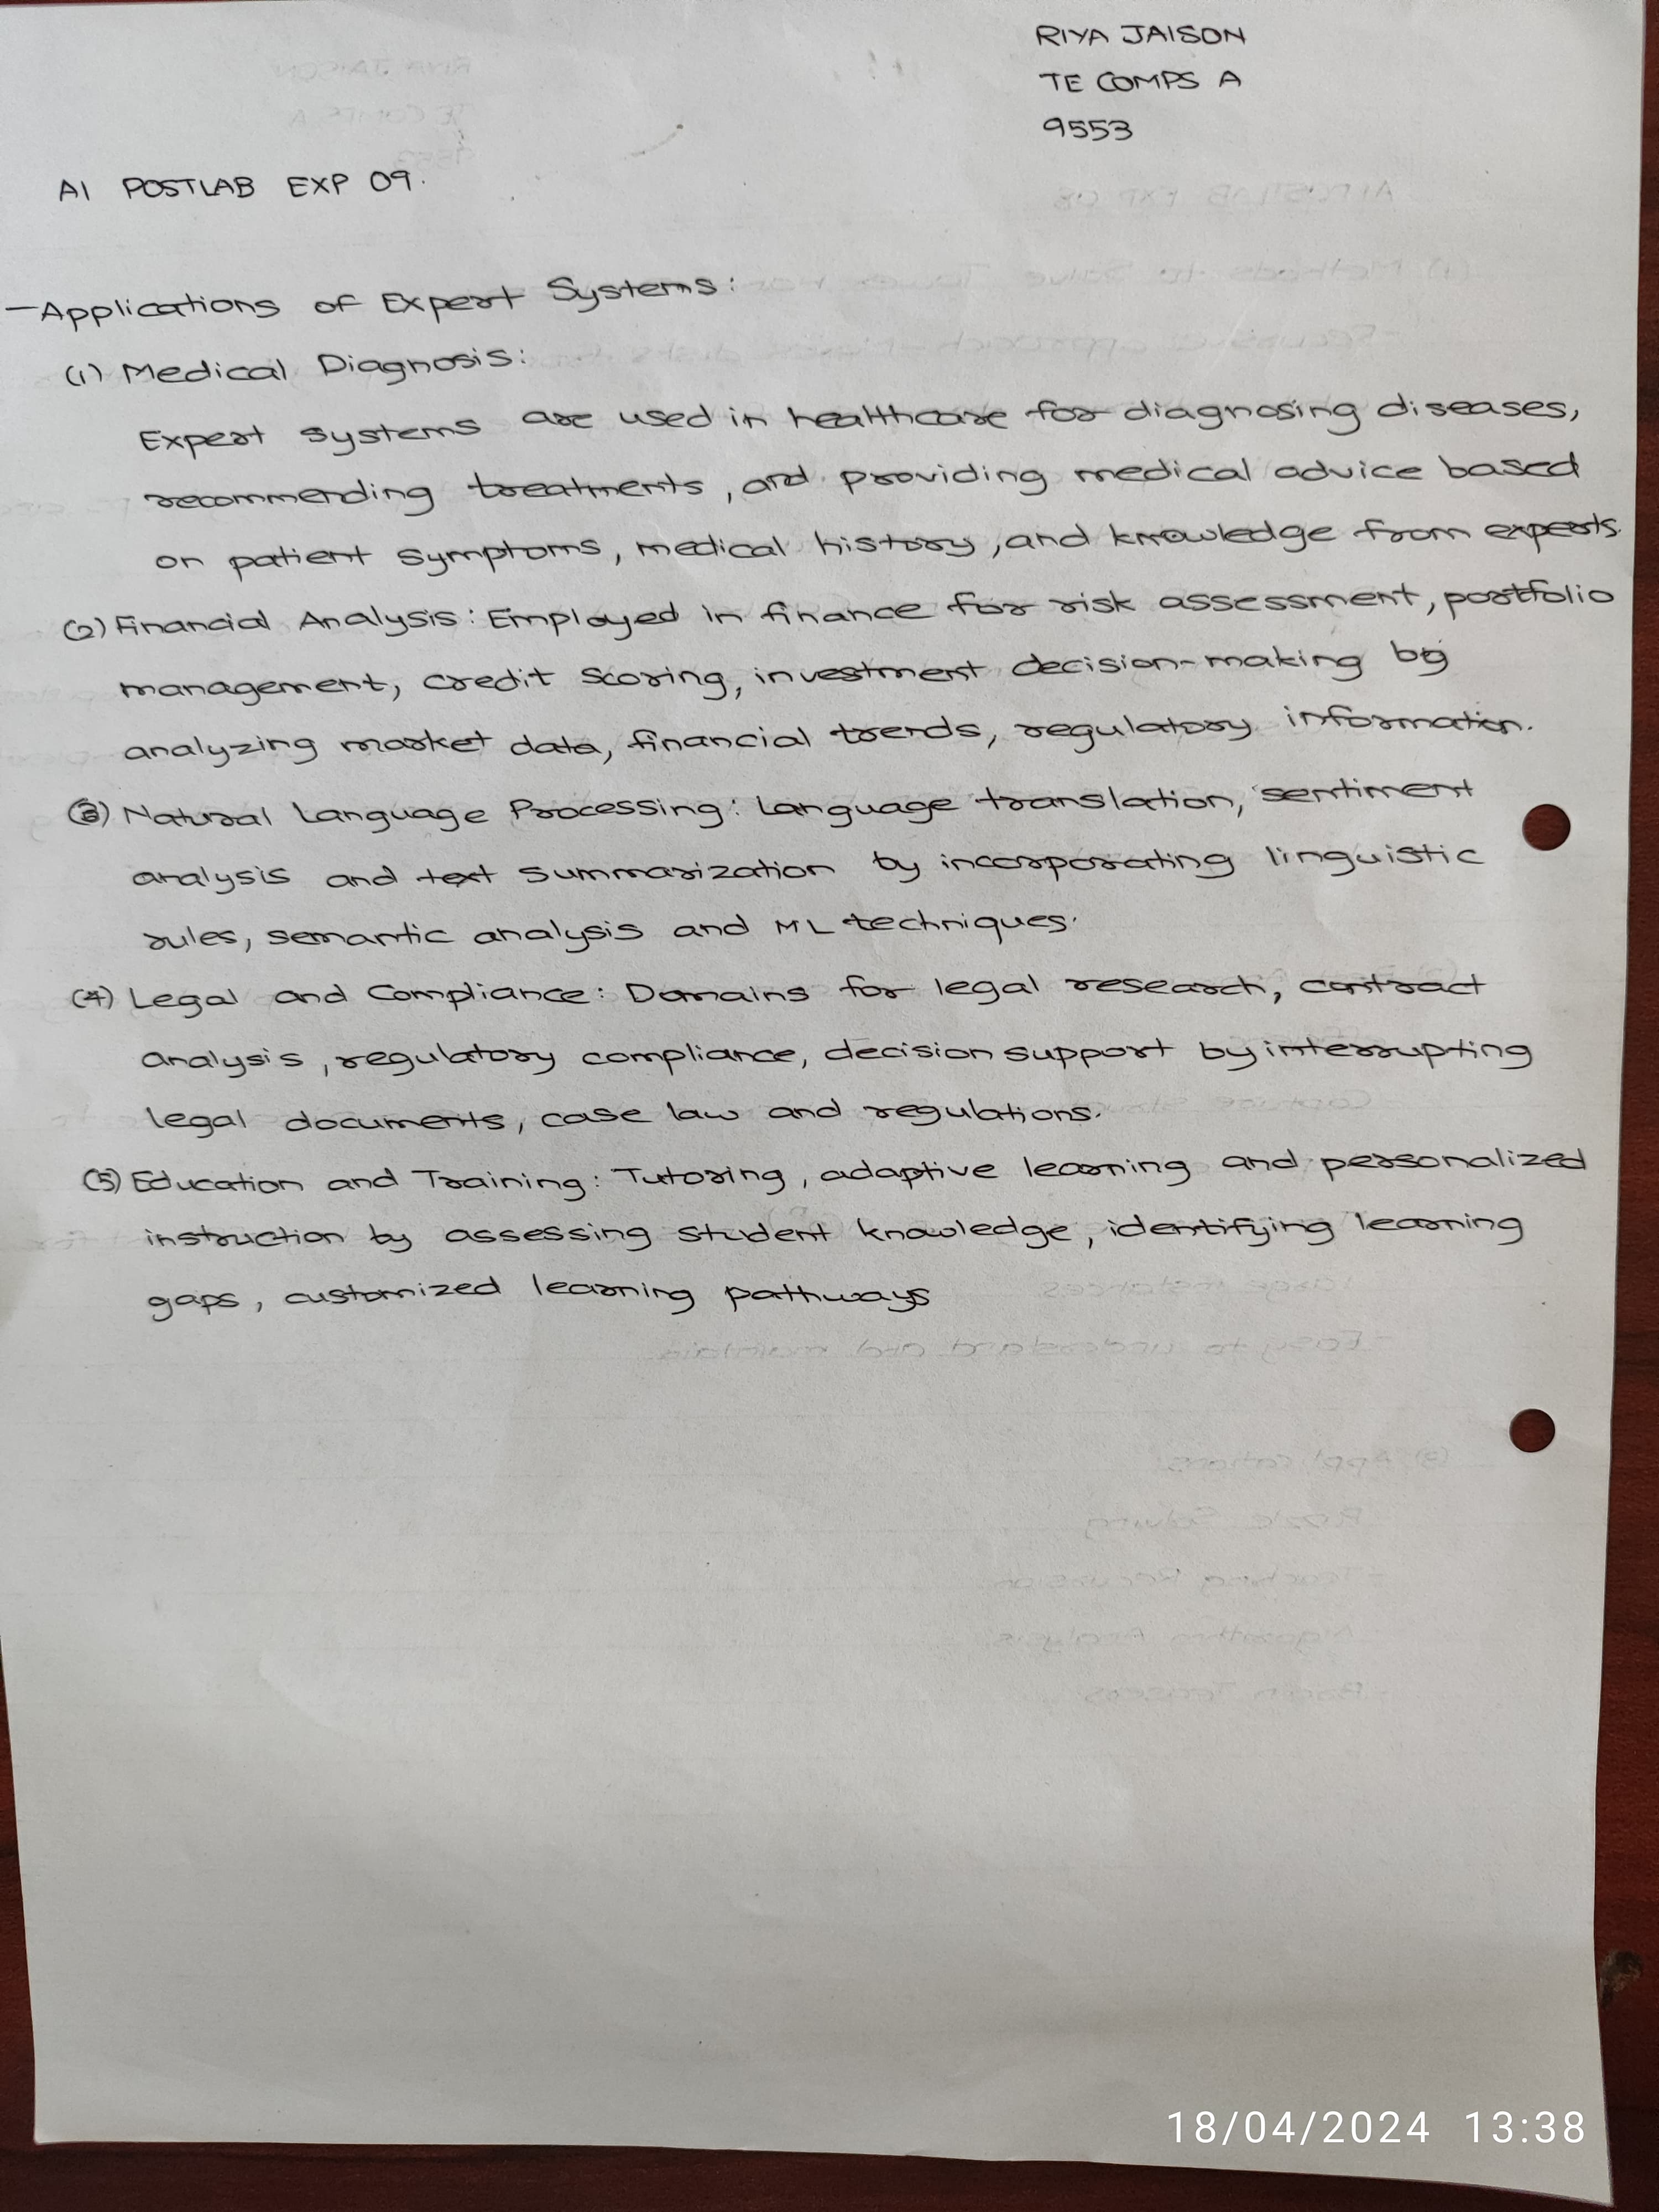 RIYA JAISON
TE COMPS A
9553
AI POSTLAB EXP 09.
- Applications of Expert Systems:
(1) Medical Diagnosis:
Expert systems are used in healthcare for diagnosing diseases,
recommending treatments, and providing medical advice based
on patient symptoms, medical history, and knowledge from experts.
(2) Financial Analysis: Employed in finance for risk assessment, portfolio
management, credit scoring, investment decision-making by
analyzing market data, financial trends, regulatory information.
(3) Natural Language Processing: Language translation, sentiment
analysis and text summarization by incorporating linguistic
rules, semantic analysis and ML techniques.
(4) Legal and Compliance: Domains for legal research, contract
analysis, regulatory compliance, decision support by interrupting
legal documents, case law and regulations.
(5) Education and Training: Tutoring, adaptive learning and personalized
instruction by assessing student knowledge, identifying learning
gaps, customized learning pathways
18/04/2024 13:38